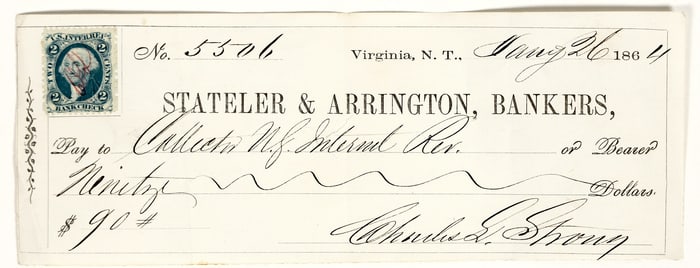 U.S. INTER. REV.
2 2
TWO CENTS
2 2
BANK CHECK
No. 5506 Virginia, N. T., Jany 26 1864
STATELER & ARRINGTON, BANKERS,
Pay to Collector U.S. Internal Rev. or Bearer
Ninety Dollars.
$ 90 #
Charles L. Strong